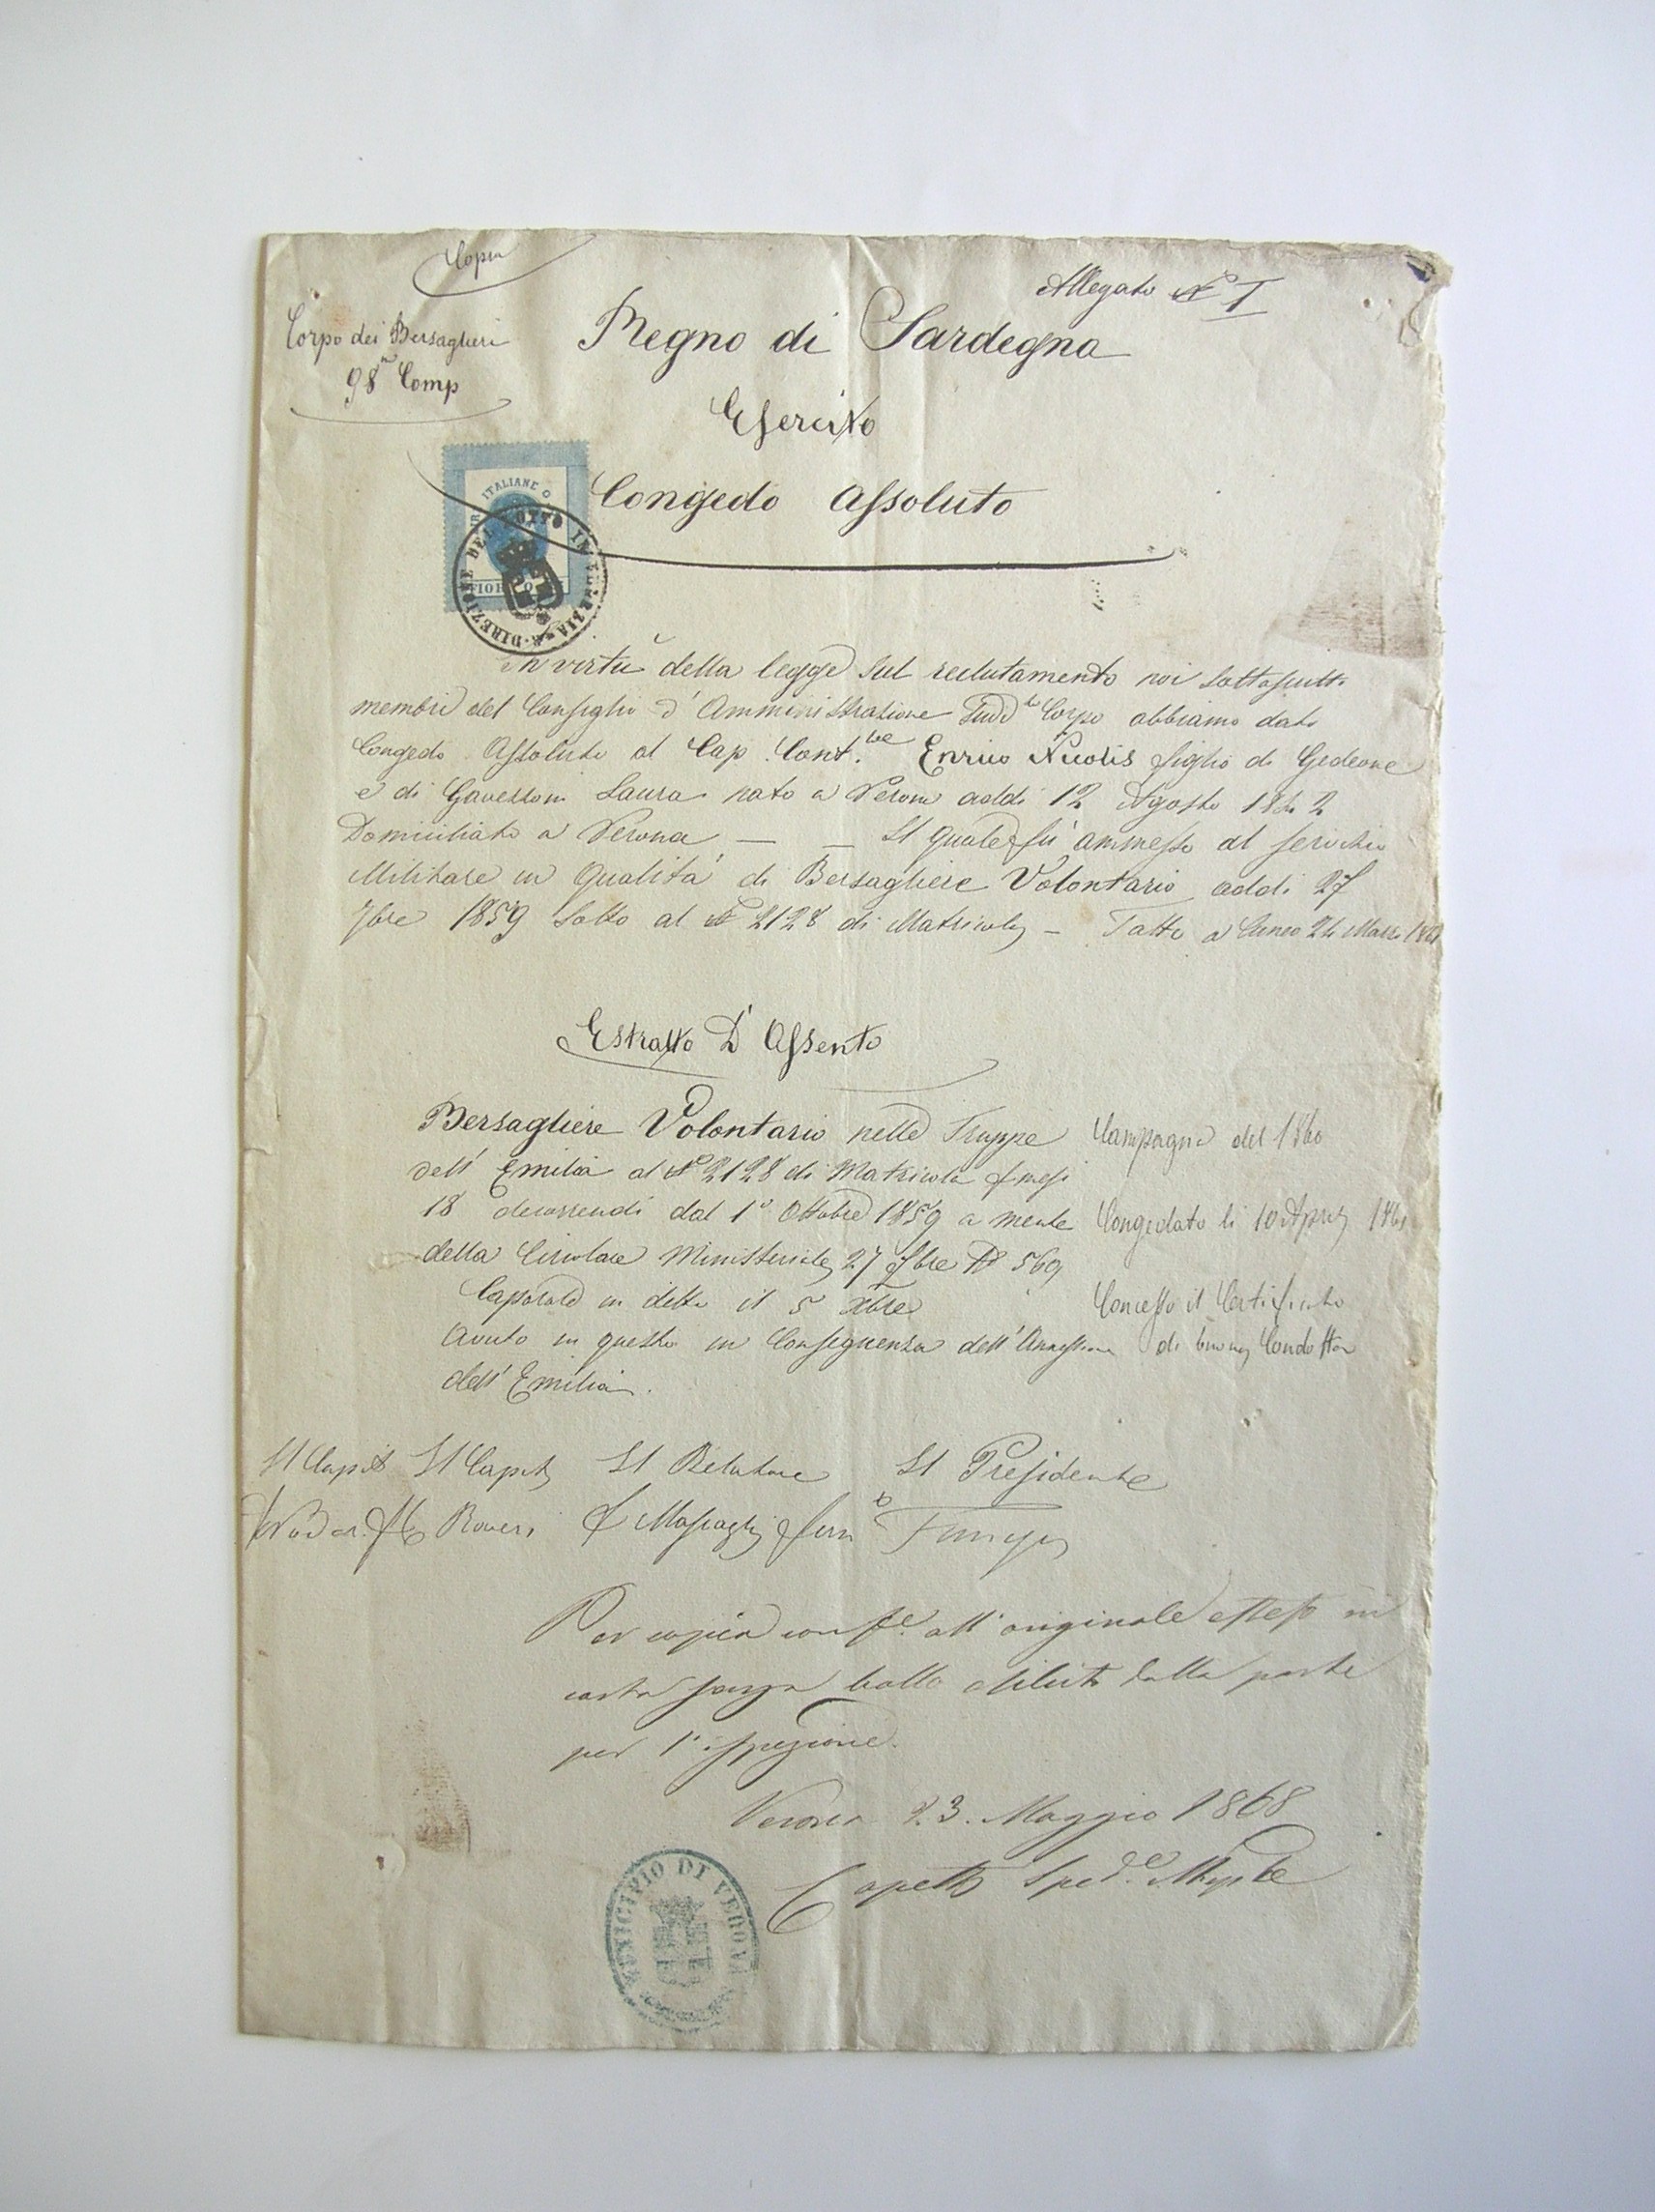 Copia
Allegato N° I
Corpo dei Bersaglieri
98ª Comp
Regno di Sardegna
Esercito
Congedo Assoluto
ITALIANE
DIREZIONE DEL LOTTO IN VENEZIA
In virtù della legge sul reclutamento noi sottoscritti
membri del Consiglio d'Amministrazione Sudd.to Corpo abbiamo dato
Congedo Assoluto al Cap. Cont. Enrico Nicolis figlio di Gedeone
e di Laura nato a Verona addì 12 Agosto 1842
Domiciliato a Verona — — Il quale fu ammesso al servizio
Militare in Qualità di Bersagliere Volontario addì 27
7bre 1859 Sotto al N° 2128 di Matricola — Fatto a Cuneo 24 Marzo
Estratto D'Assento
Bersagliere Volontario nelle Truppe
dell' Emilia al N° 2128 di Matricola mesi
18 decorrendi dal 1° Ottobre 1859 a mente
della Circolare Ministeriale 27 7bre N°
Caporale in detto il 5 Xbre
Avuto in questo in Conseguenza dell'Annessione
dell'Emilia.
Campagna del 1860
Congedato li 10 Aprile 1861
Concesso il Certificato
di buona Condotta
Il Capit Il Capit Il Relatore Il Presidente
Roveri
Per copia conf.e all'originale esteso in
carta senza bollo esibito dalla parte
per l'ispezione.
Verona 23. Maggio 1868
MUNICIPIO DI VERONA